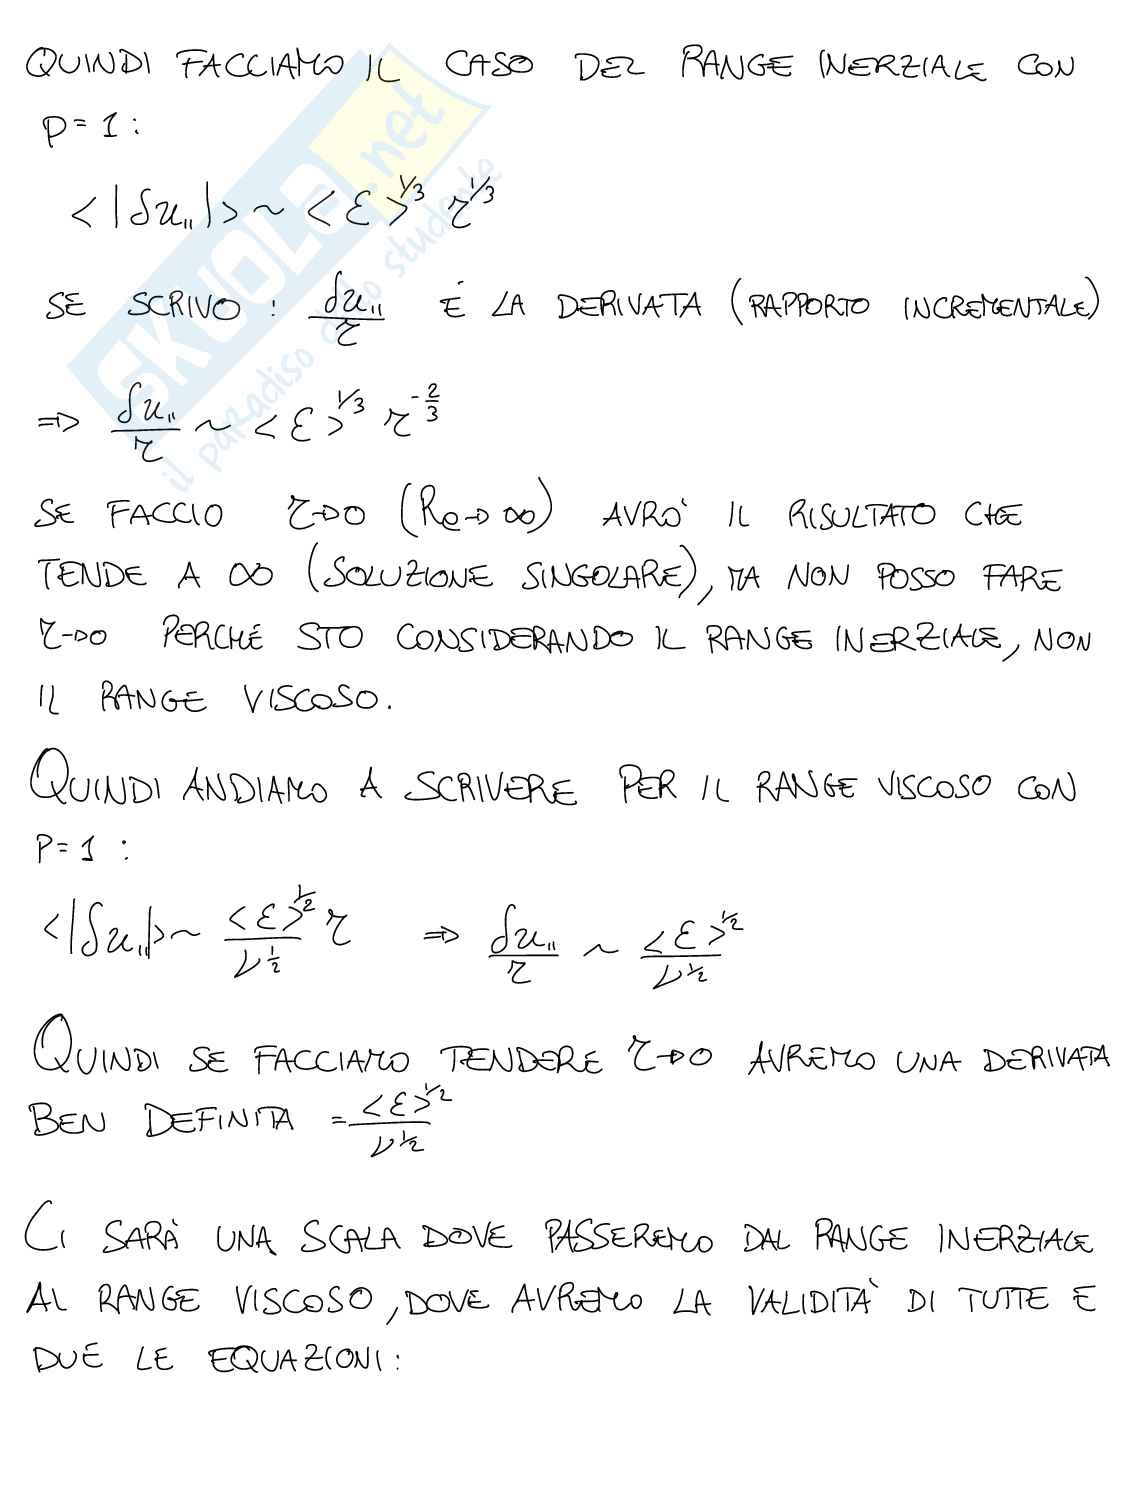 QUINDI FACCIAMO IL CASO DEL RANGE INERZIALE CON
P=1:
<|δu_{||}|> ~ <ε>^{1/3} r^{1/3}
SE SCRIVO : δu_{||}/r É LA DERIVATA (RAPPORTO INCREMENTALE)
=> δu_{||}/r ~ <ε>^{1/3} r^{-2/3}
SE FACCIO r→0 (Re→∞) AVRÒ IL RISULTATO CHE
TENDE A ∞ (SOLUZIONE SINGOLARE), MA NON POSSO FARE
r→0 PERCHÉ STO CONSIDERANDO IL RANGE INERZIALE, NON
IL RANGE VISCOSO.
QUINDI ANDIAMO A SCRIVERE PER IL RANGE VISCOSO CON
P=1 :
<|δu_{||}|> ~ <ε>^{1/2}/ν^{1/2} r => δu_{||}/r ~ <ε>^{1/2}/ν^{1/2}
QUINDI SE FACCIAMO TENDERE r→0 AVREMO UNA DERIVATA
BEN DEFINITA = <ε>^{1/2}/ν^{1/2}
CI SARÀ UNA SCALA DOVE PASSEREMO DAL RANGE INERZIALE
AL RANGE VISCOSO, DOVE AVREMO LA VALIDITÀ DI TUTTE E
DUE LE EQUAZIONI:
SKUOLA.net
il paradiso dello studente